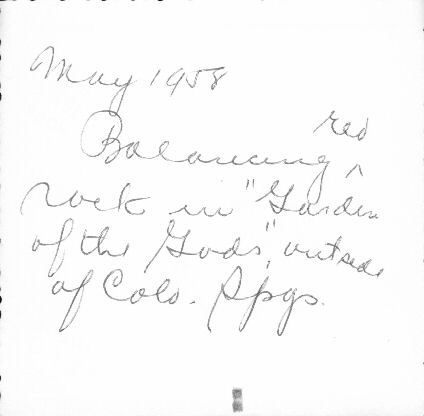 May 1958
Balancing ^ red
rock in "Garden
of the Gods", outside
of Colo. Spgs.